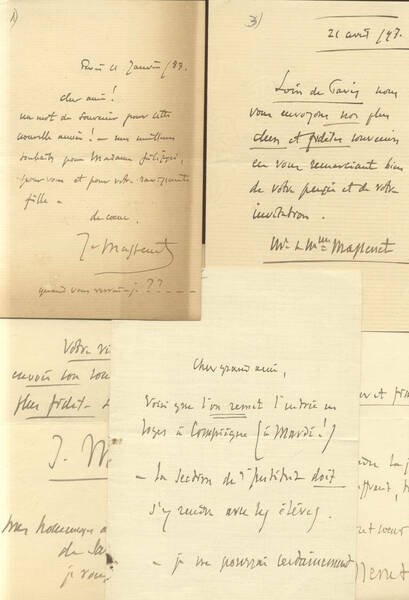 1)
Paris 11 Janvier /97.
cher ami!
un mot de souvenir pour cette
nouvelle année! – mes meilleurs
souhaits pour Madame
pour vous et pour votre ravissante
fille –
de cœur.
J. Massenet
quand vous verrai-je ??----
3)
21 avril /97.
Loin de Paris nous
vous envoyons nos plus
chers et fidèles souvenirs
en vous remerciant bien
de votre pensée et de votre
invitation.
Mr & Mme Massenet
Votre
envoie son
plus fidèle
J.
mes hommages
de
je vous
Cher grand ami,
Voici que l'on remet l'entrée en
loges à Compiègne (à Mardi!)
– la section de l'Institut doit
s'y rendre avec les élèves.
– je ne pourrai certainement
et
cœur